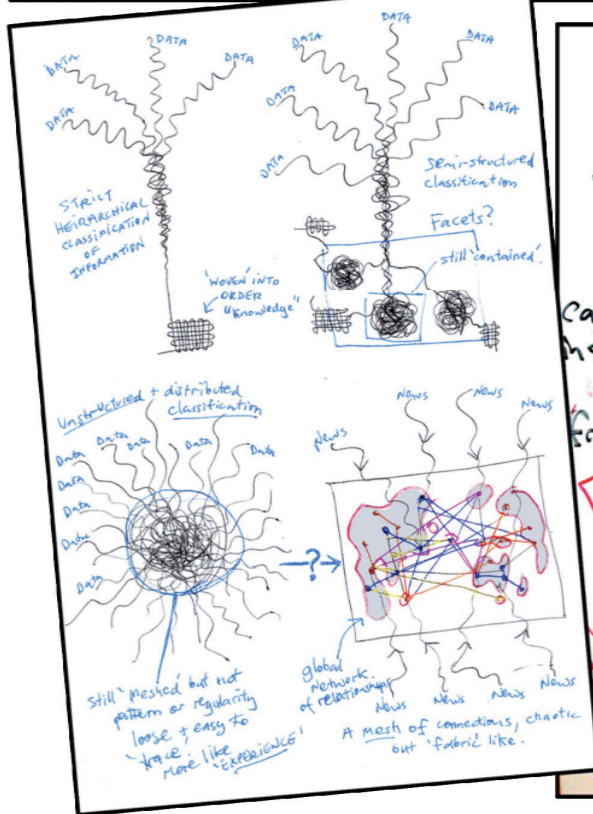 DATA
DATA
DATA
DATA
DATA
STRICT
HEIRARCHICAL
CLASSIFICATION
OF
INFORMATION
'WOVEN' INTO
ORDER
"Knowledge"
DATA
DATA
DATA
DATA
DATA
DATA
Semi-structured
classification
Facets?
still 'contained'.
Unstructured + distributed
classification
Data
Data
Data
Data
Data
Data
Data
Data
Data
Still 'meshed' but not
pattern or regularity
loose + easy to
'trace'.
More like 'EXPERIENCE'
?
News
News
News
News
global
network
of relationships
News
News
News
News
A mesh of connections, chaotic
but 'fabric' like.